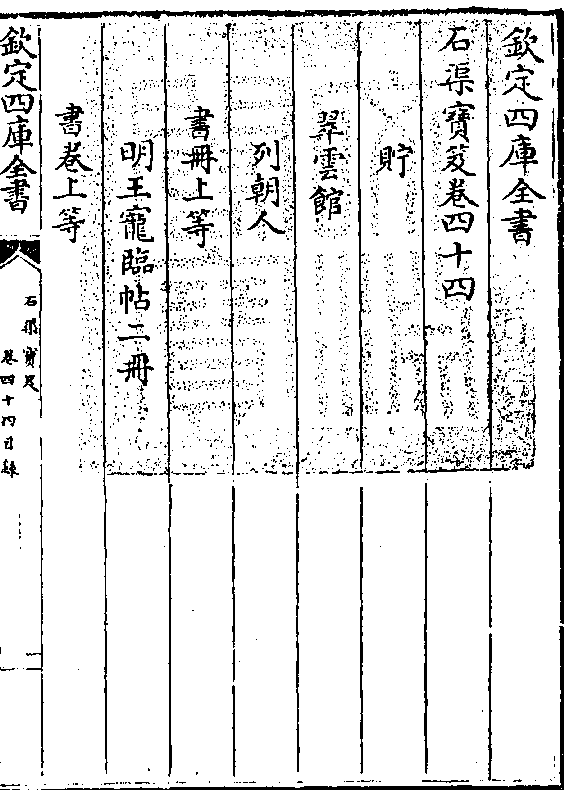 欽定四庫全書
石渠寶笈卷四十四
貯
翠雲館
列朝人
書冊上等
明王寵臨帖二冊
書卷上等
欽定四庫全書
石渠寶笈
卷四十四目錄